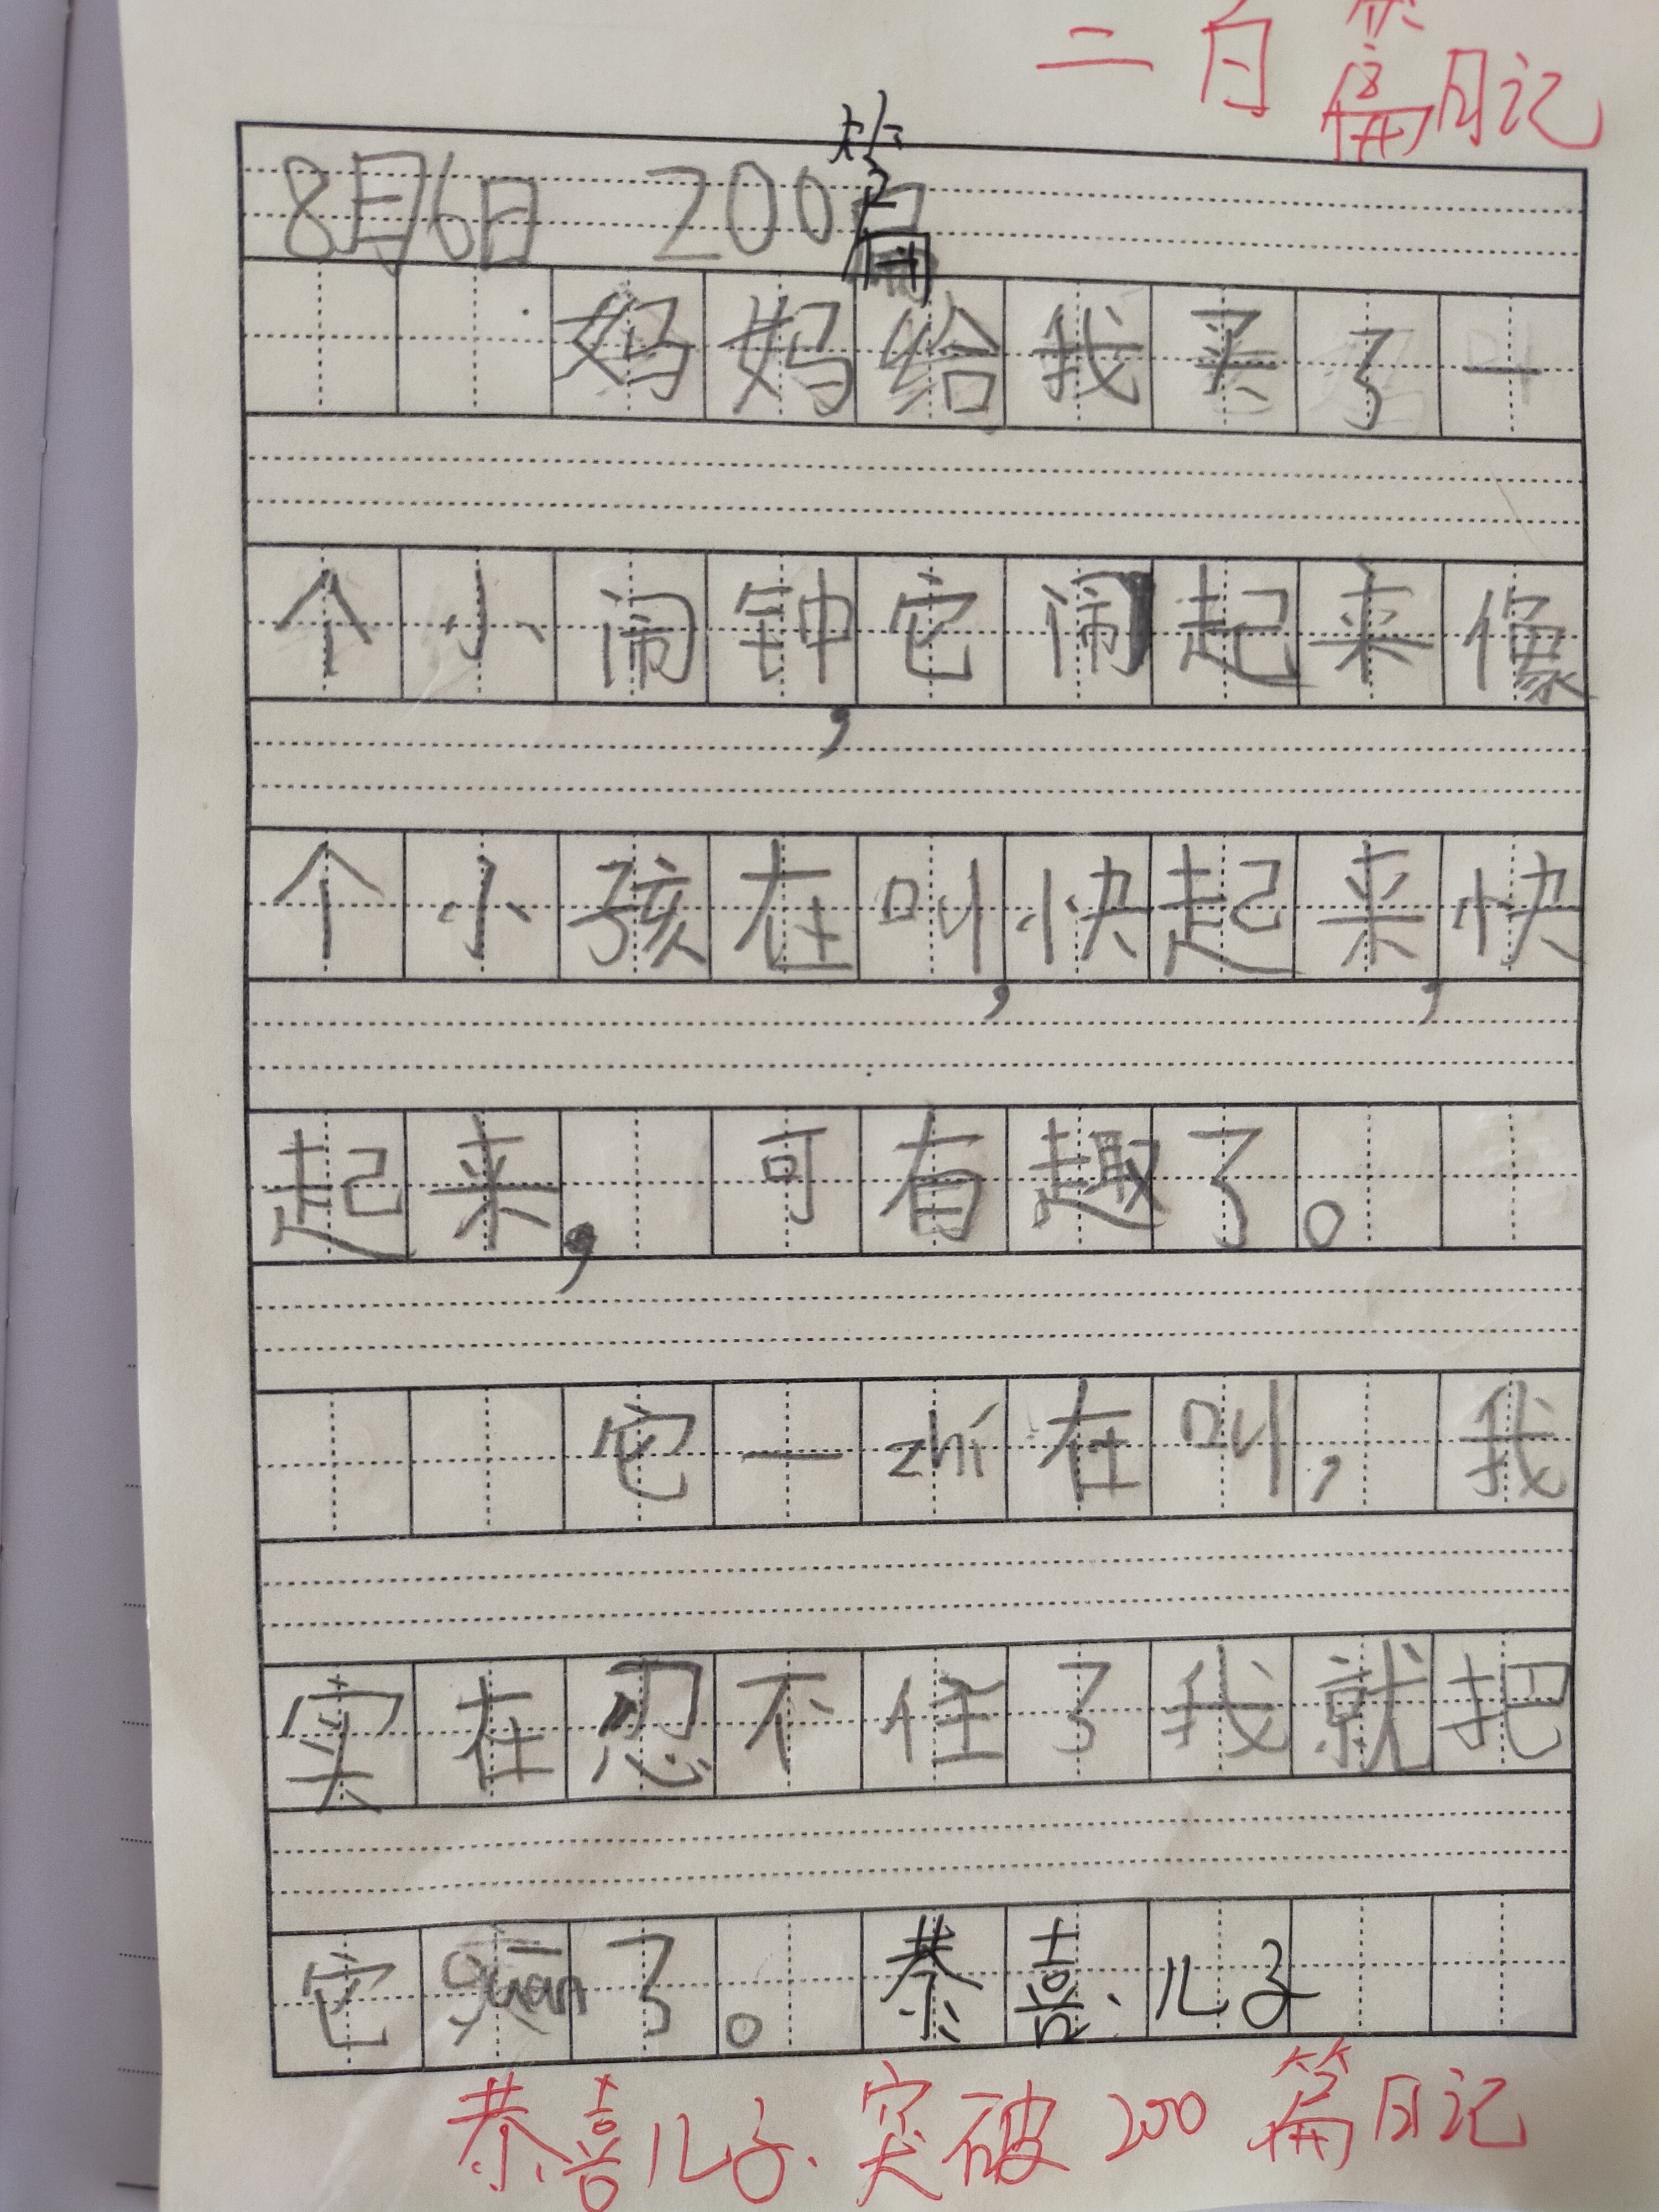 二百篇日记
8月6日 200篇
妈妈给我买了一
个小闹钟,它闹起来像
个小孩在叫,快起来,快
起来,可有趣了。
它一zhí在叫,我
实在忍不住了我就把
它guān了。恭喜儿子
恭喜儿子突破200篇日记